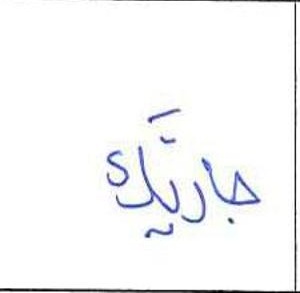 جارتَيك